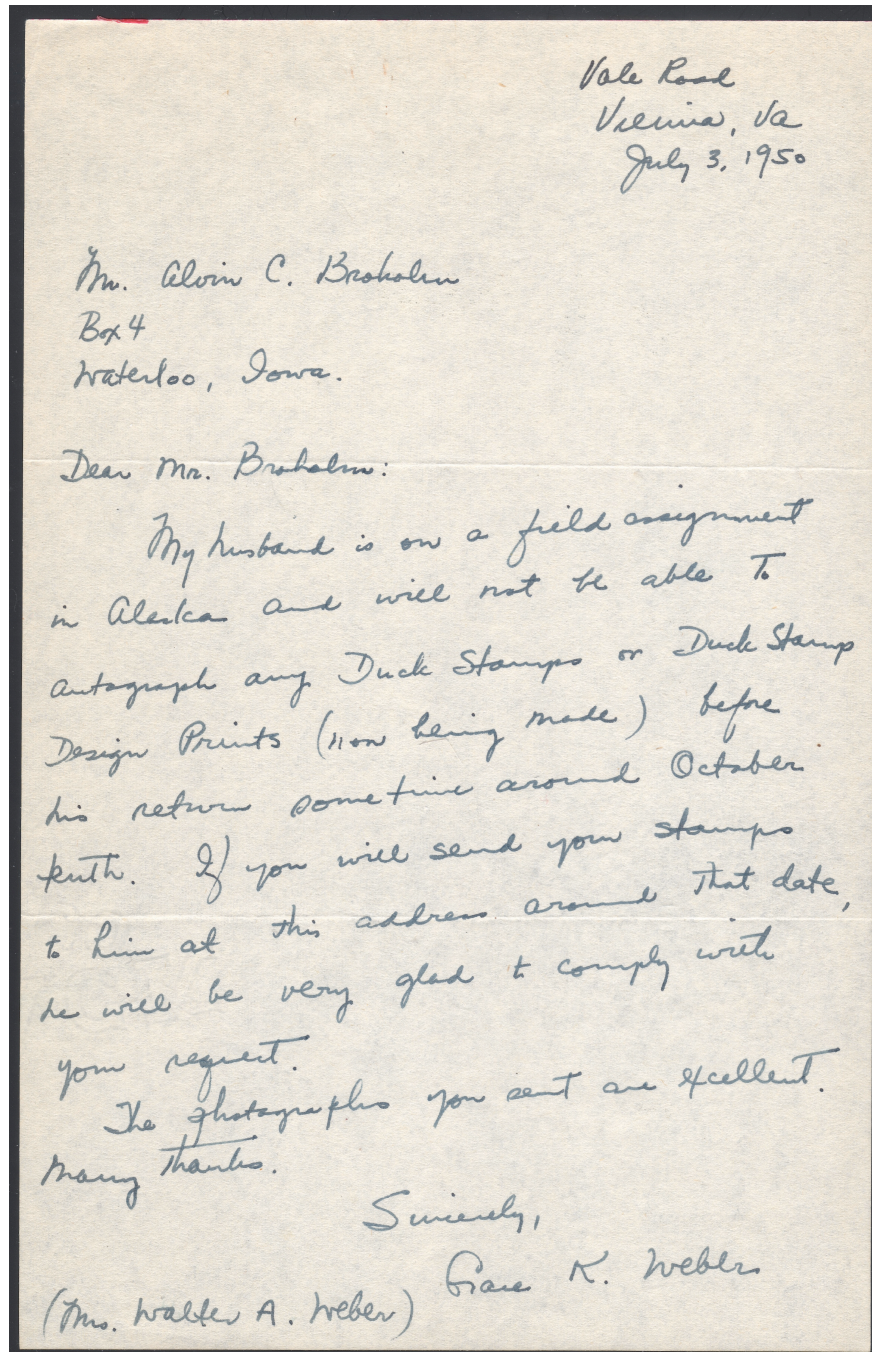 Vale Road
Vienna, Va
July 3, 1950
Mr. Alvin C. Broholm
Box 4
Waterloo, Iowa.
Dear Mr. Broholm:
My husband is on a field assignment
in Alaska and will not be able to
autograph any Duck Stamps or Duck Stamp
Design Prints (now being made) before
his return sometime around October
tenth. If you will send your stamps
to him at this address around that date,
he will be very glad to comply with
your request.
The photographs you sent are excellent.
Many thanks.
Sincerely,
Grace K. Weber
(Mrs. Walter A. Weber)